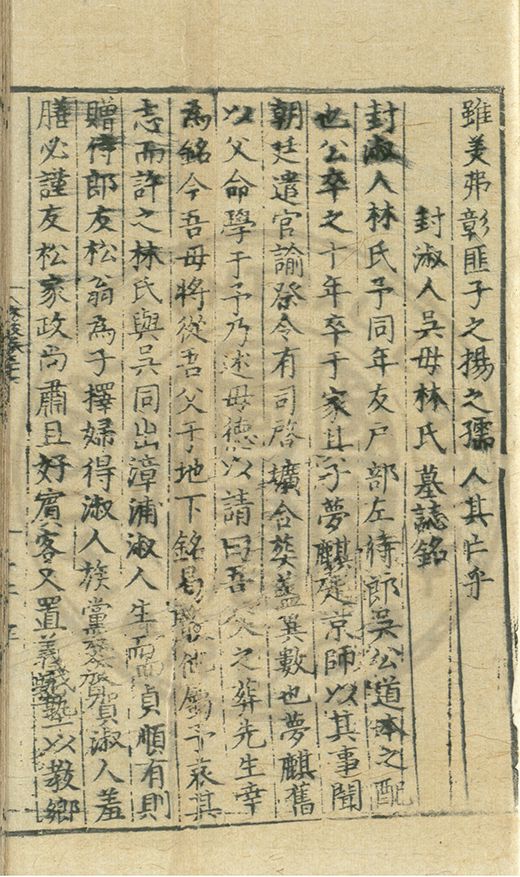 雖美弗彰匪子之揚之孺人其亡乎
封淑人吳母林氏墓誌銘
封淑人林氏予同年友戶部左侍郎吳公道本之配
也公卒之十年卒于家其子夢麒走京師以其事聞
朝廷遣官諭祭令有司啓壙合葬蓋異數也夢麒舊
以父命學于予乃述母德以請曰吾父之葬先生幸
為銘今吾母將從吾父于地下銘曷予哀其
志而許之林氏與吳同出漳浦淑人生而貞順有則
贈侍郎友松翁為子擇婦得淑人族黨賀淑人羞
膳必謹友松家政尚肅且好賓客又置義塾以教鄉